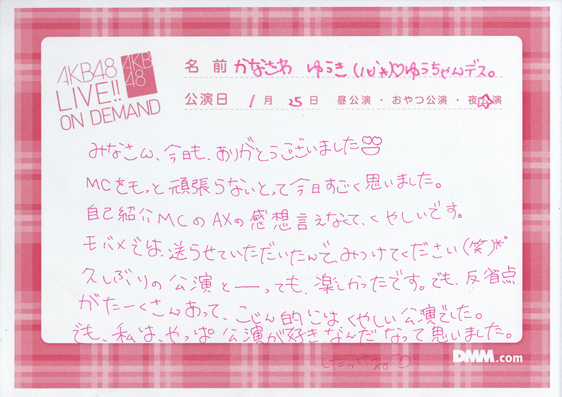 AKB48
LIVE!!
ON DEMAND
AKB
48
名前 かなざわ ゆうき ♡ゆうちゃんデス。
公演日 1月 25日 昼公演・おやつ公演・夜公演
みなさん、今日も、ありがとうございました
MCをもっと頑張らないとって今日すごく思いました。
自己紹介MCのAXの感想言えなくて、くやしいです。
モバメでは、送らせていただいたんで、みつけてください(笑)
久しぶりの公演と――っても、楽しかったです。でも、反省点
がたーくさんあって、こじん的にはくやしい公演でした。
でも、私は、やっぱ公演が好きなんだなって思いました。
DMM.com